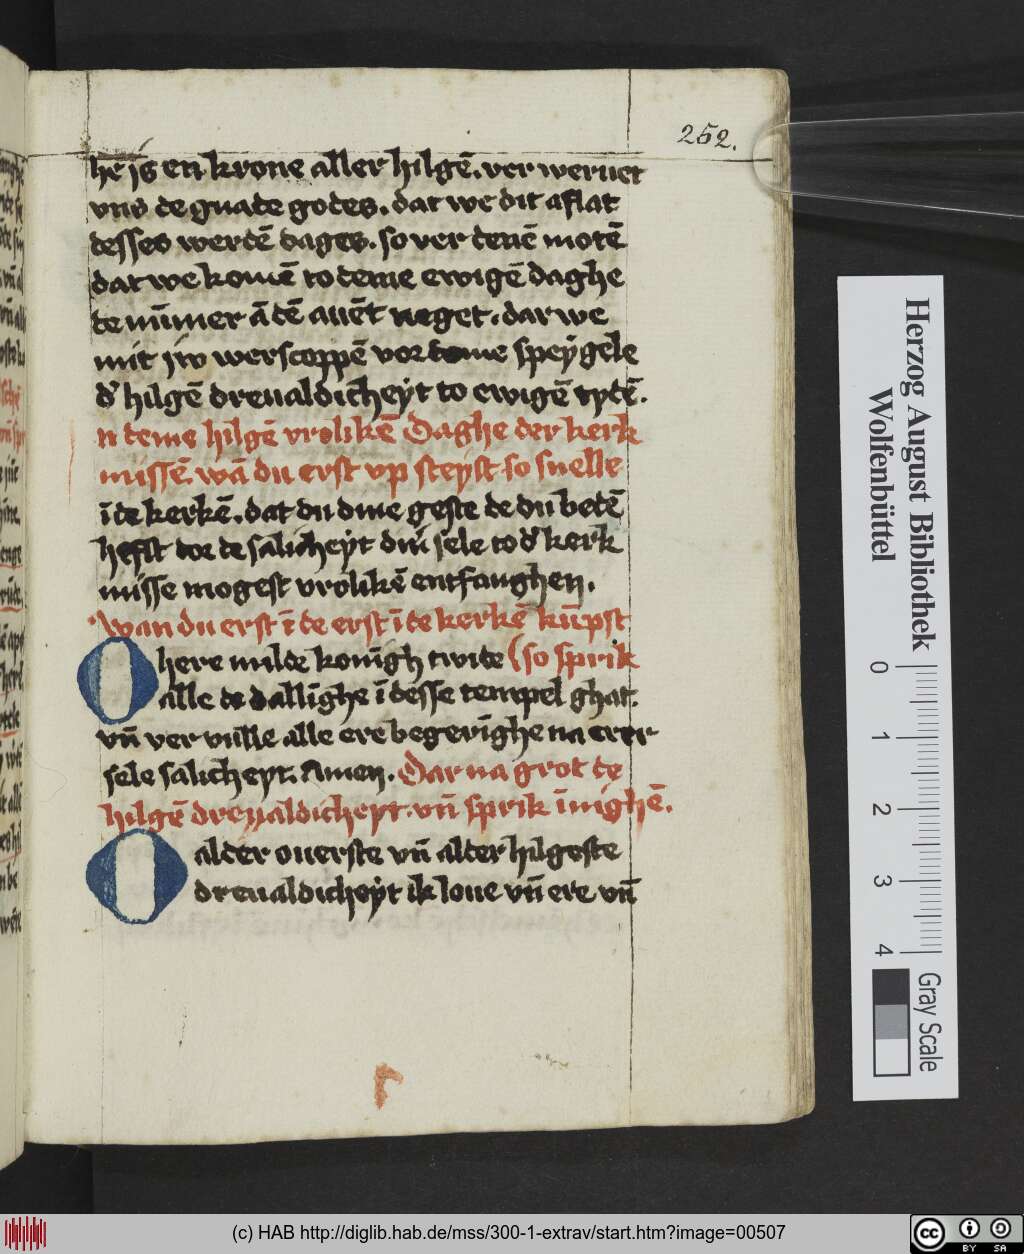 252.
he is en krone aller hilgē. ver weruet
vns de gnade godes. dat we dit aflat
desses werdē dages. so ver denē motē
dat we komē to deme ewigē daghe
de nūmer ā dē auēt neget. dar we
mit jw werscoppē vor deme speygele
d' hilgē dreualdicheyt to ewigē tydē.
n deme hilgē vrolikē Daghe der kerk
missē. wā du erst vp steyst so snelle
ī de kerkē. dat du dine geste de du bedē
hefst vor de salicheyt dinˉ sele to d' kerk
misse mogest vrolikē entfanghen.
Wan du erst ī de erst ī de kerkē kūpst
O here milde konīgh twide (so sprik
alle de dallīghe ī desse tempel ghat.
vn̄ ver vulle alle ere begerīghe na erer
sele salicheyt. Amen. Dar na grot de
hilgē dreualdicheyt. vn̄ sprik īnighē.
O alder ouerste vn̄ alder hilgeste
dreualdicheyt ik loue vn̄ ere vn̄
Herzog August Bibliothek
Wolfenbüttel
0 1 2 3 4
Gray Scale
(c) HAB http://diglib.hab.de/mss/300-1-extrav/start.htm?image=00507
cc BY SA